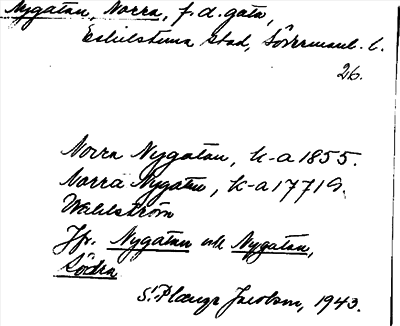 Nygatan, Norra, f.d. gata,
Eskilstuna stad, Södermanl. l.
26.
Norra Nygatan, k-a 1855.
Norra Nygatan, k-a 1771
Wahlström
Jfr. Nygatan och Nygatan,
Södra
S. Jacobson, 1943.